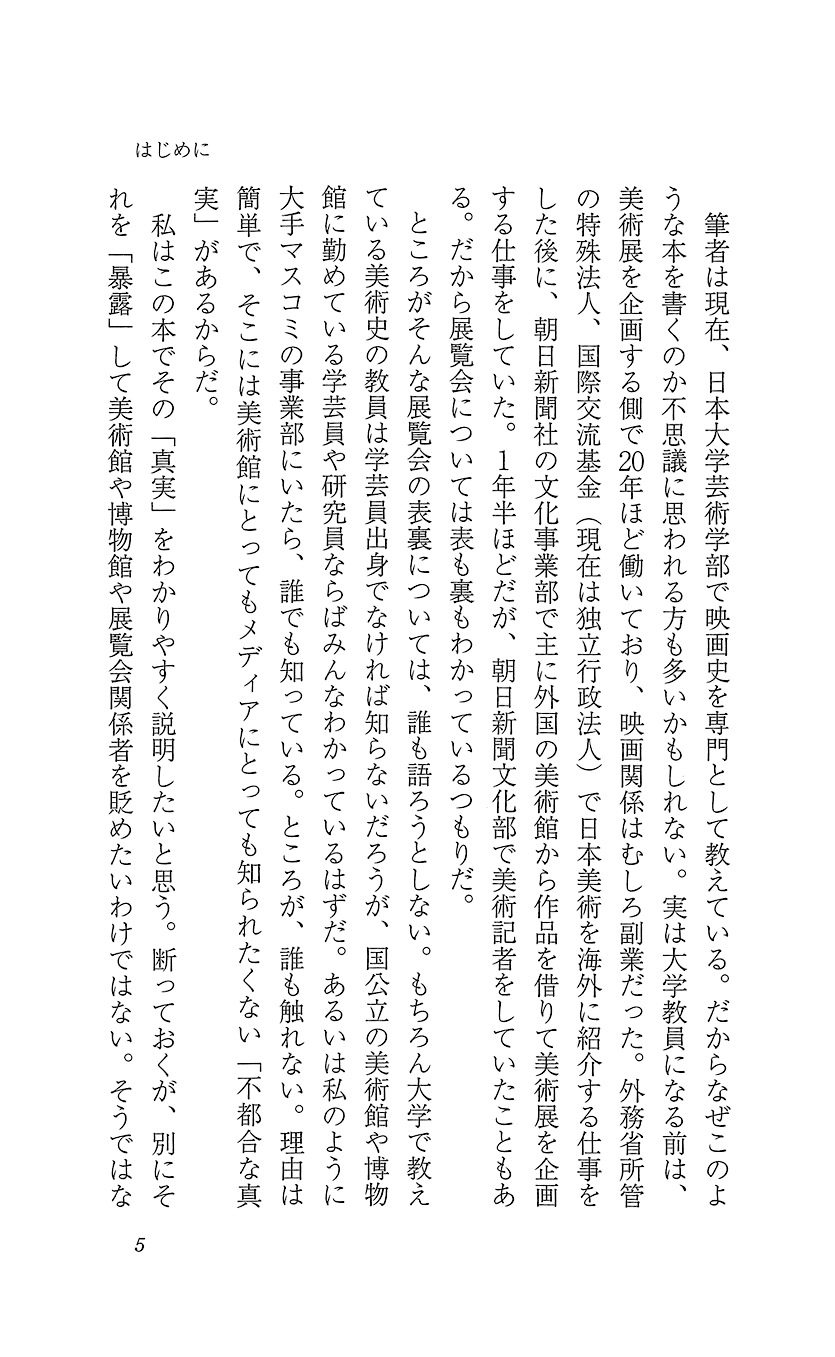 はじめに
筆者は現在、日本大学芸術学部で映画史を専門として教えている。だからなぜこのよ
うな本を書くのか不思議に思われる方も多いかもしれない。実は大学教員になる前は、
美術展を企画する側で20年ほど働いており、映画関係はむしろ副業だった。外務省所管
の特殊法人、国際交流基金（現在は独立行政法人）で日本美術を海外に紹介する仕事を
した後に、朝日新聞社の文化事業部で主に外国の美術館から作品を借りて美術展を企画
する仕事をしていた。1年半ほどだが、朝日新聞文化部で美術記者をしていたこともあ
る。だから展覧会については表も裏もわかっているつもりだ。
ところがそんな展覧会の表裏については、誰も語ろうとしない。もちろん大学で教え
ている美術史の教員は学芸員出身でなければ知らないだろうが、国公立の美術館や博物
館に勤めている学芸員や研究員ならばみんなわかっているはずだ。あるいは私のように
大手マスコミの事業部にいたら、誰でも知っている。ところが、誰も触れない。理由は
簡単で、そこには美術館にとってもメディアにとっても知られたくない「不都合な真
実」があるからだ。
私はこの本でその「真実」をわかりやすく説明したいと思う。断っておくが、別にそ
れを「暴露」して美術館や博物館や展覧会関係者を貶めたいわけではない。そうではな
5